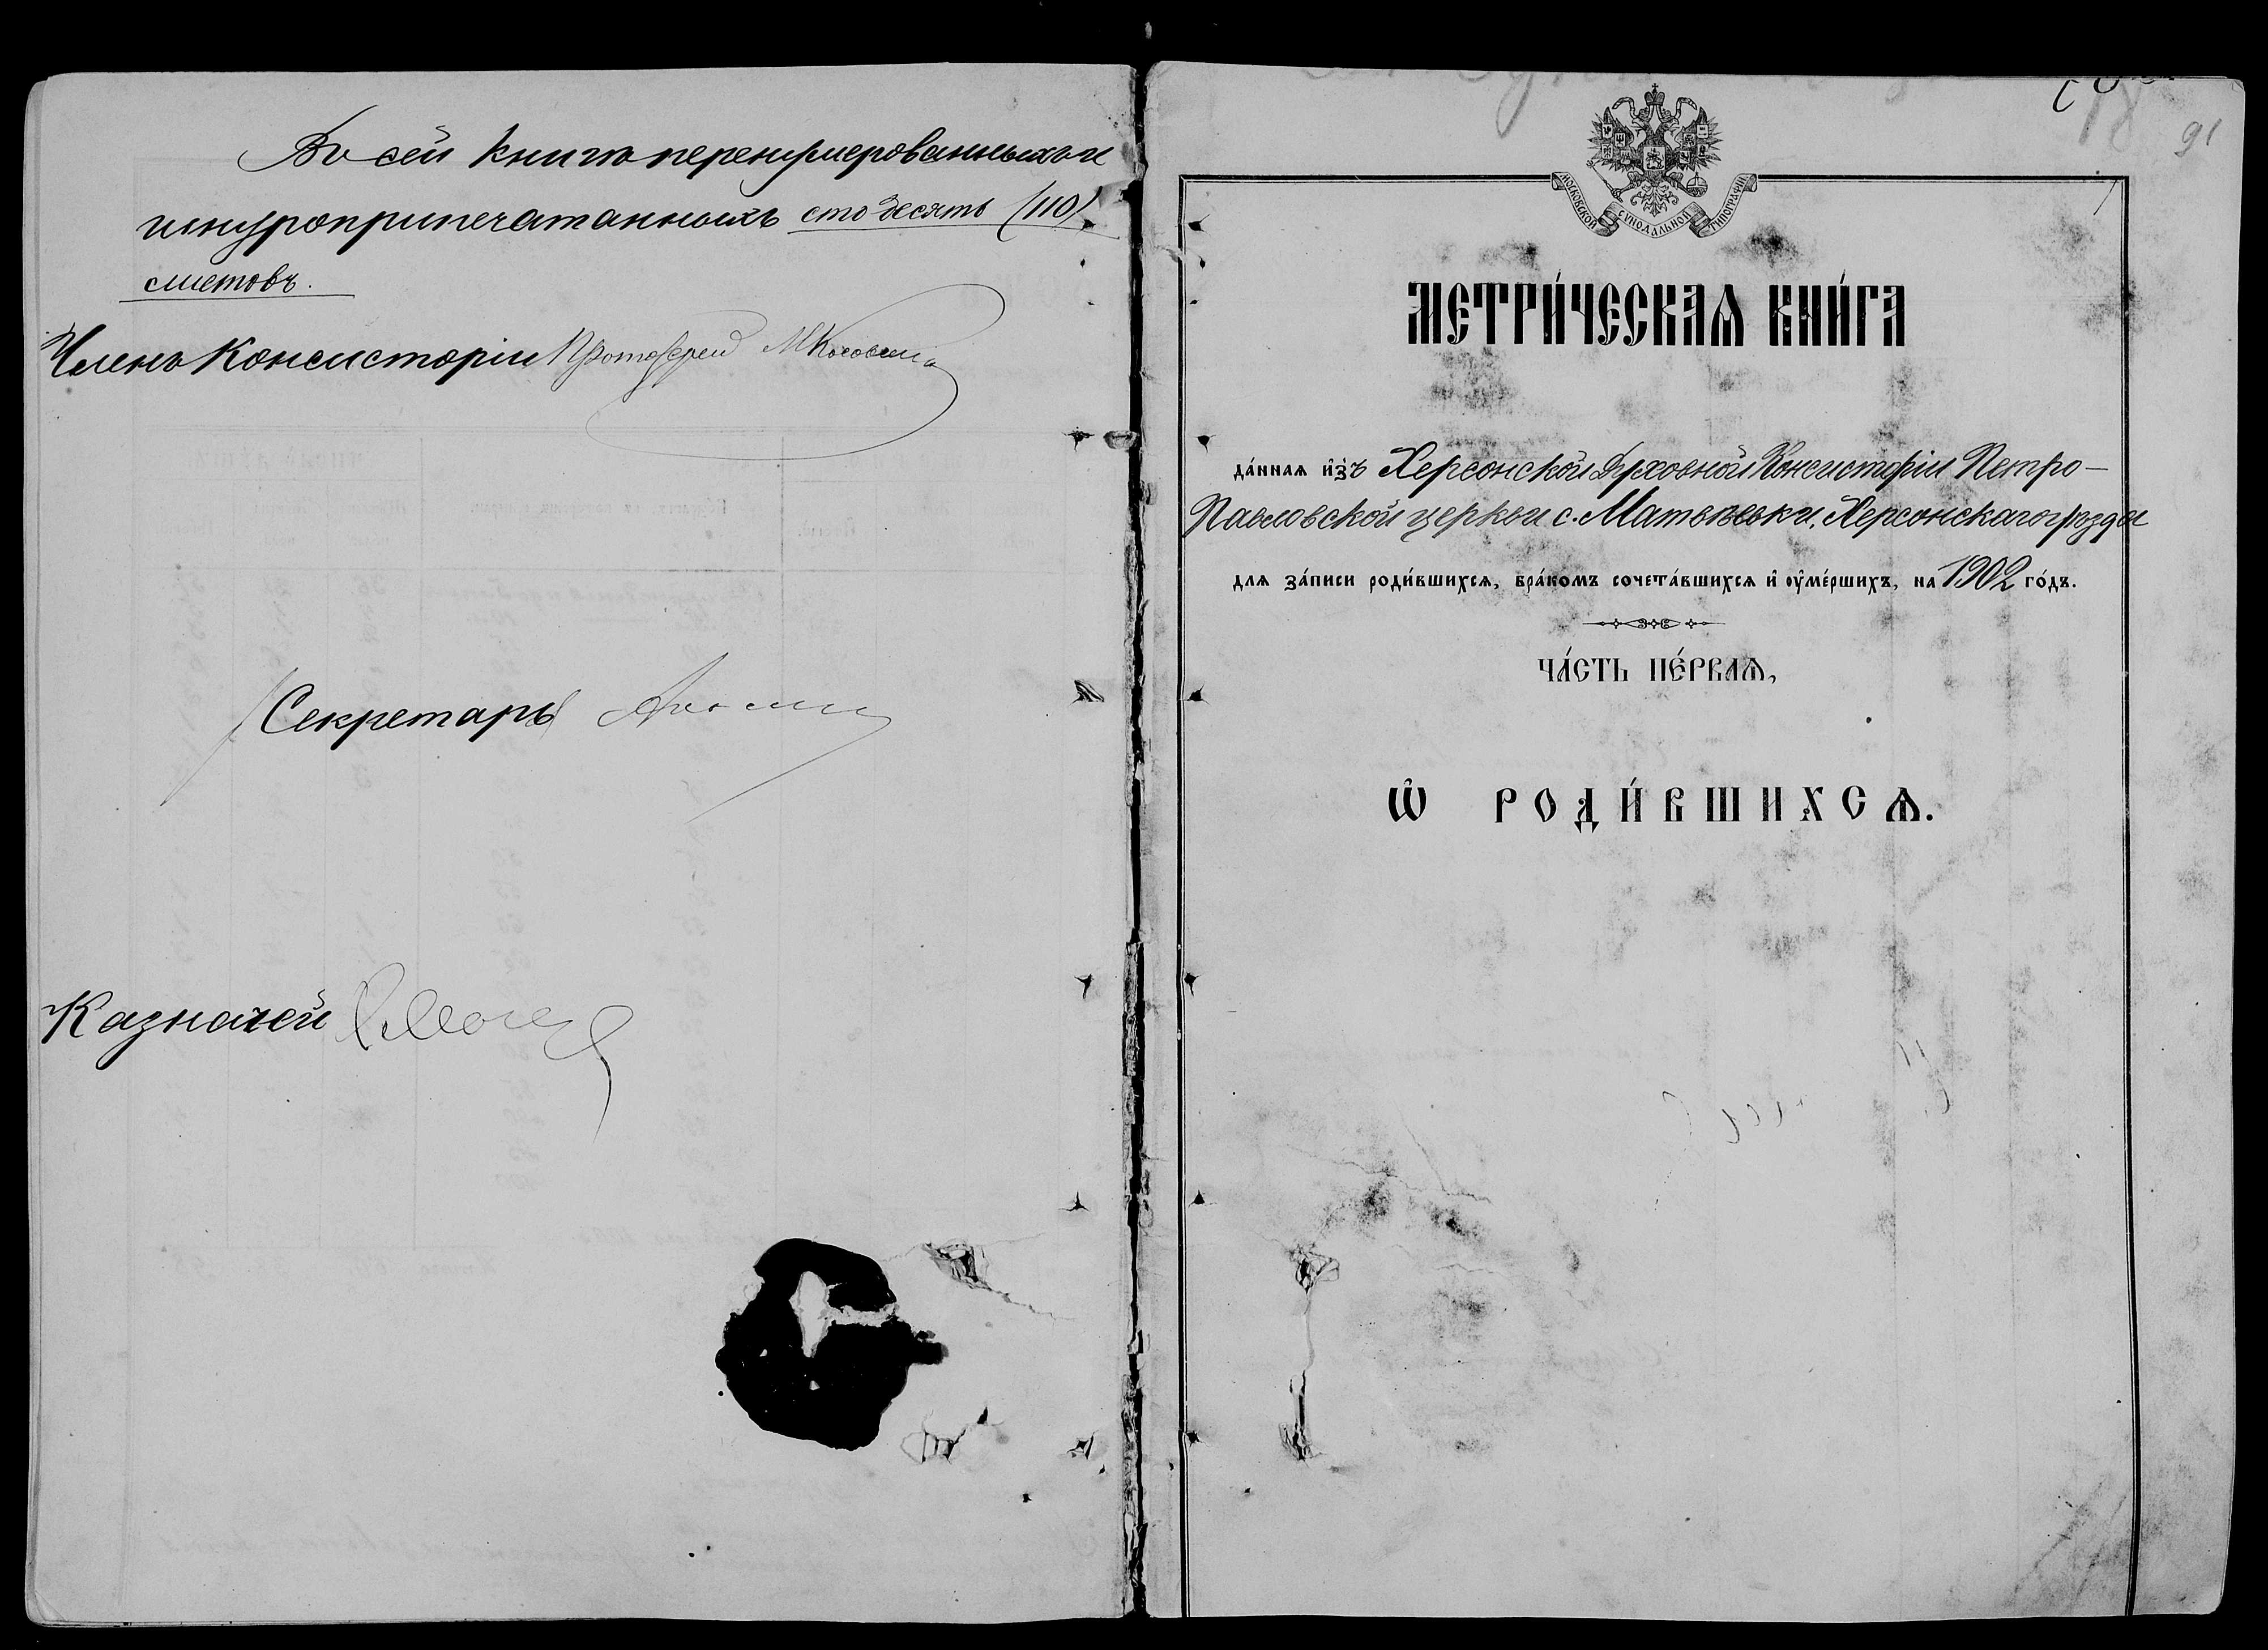 Въ сей книгѣ перенумерованныхъ и
шнуроприпечатанныхъ сто десять (110)
листовъ.
Членъ Консисторіи Протоіерей М
Секретарь
Казначей
91
1
МОСКОВСКОЙ СѴНОДАЛЬНОЙ ТИПОГРАФІИ
МЕТРИ́ЧЕСКАѦ КНИ́ГА
да́ннаѧ и҆зъ Херсонской Духовной Консисторіи Петро-
Павловской церкви с. Матвѣевки, Херсонскаго уѣзда
длѧ за́писи роди́вшихсѧ, бра́комъ сочета́вшихсѧ и҆ ѹ҆ме́ршихъ, на 1902 го́дъ.
ЧА́СТЬ ПЕ́РВАѦ,
Ѡ҆ РОДИ́ВШИХСѦ.